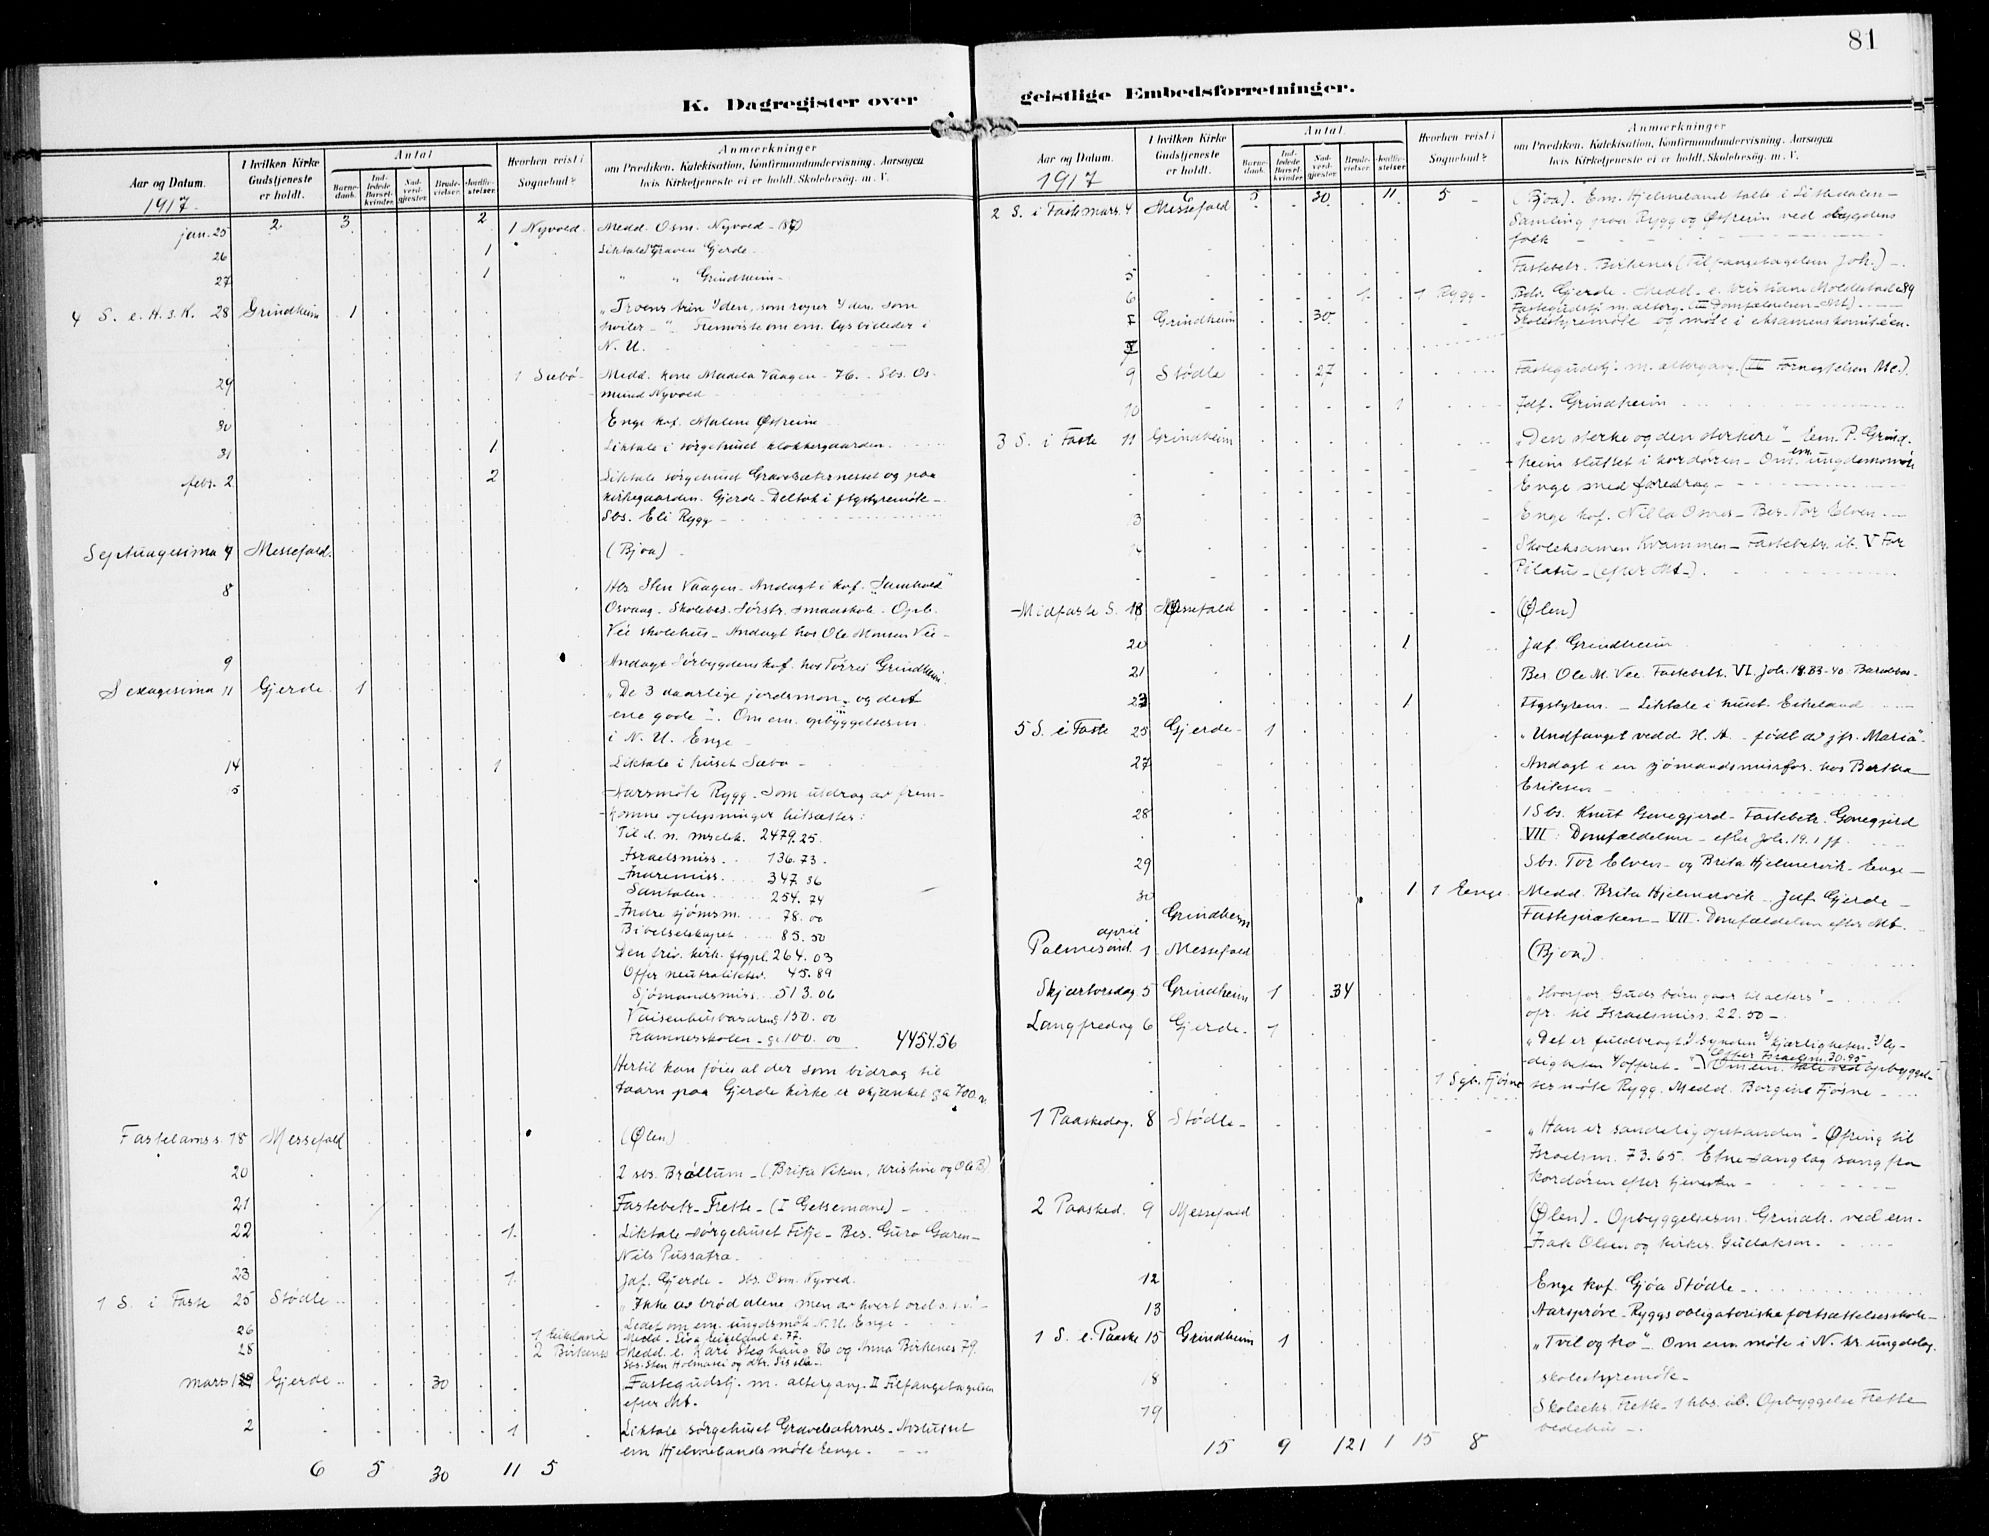 81
K. Dagregister over
geistlige Embedsforretninger.
Aar og Datum.
1917.
I hvilken Kirke
Gudstjeneste
er holdt.
Antal
Barne-
daab.
Ind-
ledede
Barsel-
kvinder.
Nad-
verd-
gjester
Brude-
vielser.
Jordfæ-
stelser.
Hvorhen reist i
Sognebud?
Anmærkninger
om Prædiken, Katekisation, Konfirmandundervisning, Aarsagen
hvis Kirketjeneste ei er holdt, Skolebesøg, m. V.
2 3 2
jan. 25 1 Nyvold Medd. Osm. Nyvold
26 1 Liktale Graven Gjerde
27 1 " " Grindheim
4 S. e. H. 3. K. 28 Grindheim 1 „Troens trin
hviler – " Fremviste om em. lysbilleder i
N. U.
29 1 Sæbö Medd. kone Madela Vaagen 76. Sbs. Os-
mund Nyvold
30 Enge kof. Malene Østreim
31 1 Liktale i sørgehuset klokkergaarden
febr. 2 2 Liktale sørgehuset og paa
kirkegaarden. Gjerde – Deltok i ftgstyremöte –
Sbs. Eli Rygg –
Septuagesima 4 Messefald (Bjoa)
8 Hbs Sten Vaagen – Andagt i kof. „Samhold"
Osvaag. Skolebes. Sørstr. smaaskole. Opb.
Vee skolehus – Andagt hos Ole Monsen Vee –
9 Andagt Sørbygdens kof. hos Torres Grindheim
Sexagesima 11 Gjerde 1 „De 3 daarlige jordsmon og det
ene gode". Om em. opbyggelsesm.
i N. U. Enge –
14 1 Liktale i huset Sæbø –
5 Aarsmöte Rygg. Som utdrag av frem-
komne oplysninger hitsættes:
Til d. n. mselsk. 2479.25
Israelsmiss. 136.73
Indremiss. 347.36
Santalen 254.74
Indre sjømsm. 78.00
Bibelselskapet 85.50
Den friv. kirk. ftgpl. 264.03
Offer neutralitetsv. 45.89
Sjömandsmiss. 513.06
Vaisenhusbasaren 150.00
Framnesskolen – 100.00 4454.56
Hertil kan föies at der som bidrag til
taarn paa Gjerde kirke er skjænket ca 700 kr.
Fastelavns s. 18 Messefald (Ølen)
20 2 sbs. Bröllum – (Brita Viken, Kristine og Ole B)
21 Fastebetr. Frette – (I Getsemane) –
22 1 Liktale sørgehuset Fitje – Bes. Guro Garen –
Nils Pussatra
23 1 Jdf. Gjerde – Sbs. Osm. Nyvold.
1 S. i Faste 25 Stödle „Ikke av bröd alene, men av hvert ord o. s. v." –
Ledet om em. ungdsmöte N. U. Enge
26 1 Eikeland Medd. Siva Eikeland e. 77.
28 2 Birkenes Medd. e. Kari Steghaug 86 og Anna Birkenes 79.
Sbs. Sten Holmasei og dtr. Sissela –
mars 1 Gjerde 30 Fastegudstj. m. altergang. II Tilfangetagelsen
efter Mt.
2 1 Liktale sørgehuset – Avsluttet
em Hjelmelands möte Enge –
6 5 30 11 5
Aar og Datum.
1917
I hvilken Kirke
Gudstjeneste
er holdt.
Antal
Barne-
daab.
Ind-
ledede
Barsel-
kvinder.
Nad-
verd-
gjester
Brude-
vielser.
Jordfæ-
stelser.
Hvorhen reist i
Sognebud?
Anmærkninger
om Prædiken, Katekisation, Konfirmandundervisning, Aarsagen
hvis Kirketjeneste ei er holdt, Skolebesög, m. V.
6 5 30 11 5
2 S. i Faste mars. 4 Messefald (Bjoa). Em. Hjelmeland talte i Litledalen –
Samling paa Rygg og Østreim ved bygdens
folk
5 Fastebetr. Birkenes (Tilfangetagelsen Joh.) –
6 1 1 Rygg – Bdv. Gjerde. Medd. e. Kristiane Moldestad e 89
Fastegudstj. m. alterg. (III Domfældelsen Mt)
7 Grindheim 30 Skolestyremöte og möte i eksamenskomitéen.
9 Stödle 27 Fastegudstj. m. altergang. (III Fornegtelsen Mt.).
10 1 Jdf. Grindheim
3 S. i Faste 11 Grindheim „Den sterke og den sterkere" – Em. P. Grind-
heim sluttet i kordören – Om em. ungdomsmöte
Enge med foredrag –
13 Enge kof. Nilla Omes – Bes. Tor Elven –
Skoleksamen Kvammen – Fastebetr. ib. V For
Pilatus – (efter Mt.).
Midfaste S. 18 Messefald (Ølen)
20 1 Jdf. Grindheim
21 Bes. Ole M. Vee. Fastebetr. VI. Joh. 18.33-40
23 1 Ftgstyrem. – Liktale i huset. Eikeland
5 S. i Faste 25 Gjerde 1 „Undfanget vedd H. A. – födt av jfr. Maria".
27 Andagt i en sjömandsmisfor. hos Bertha
Eriksen –
28 1 Sbs. Knut Gonegjerd – Fastebetr. Gonegjerd
VII: Domfældelsen – efter Joh. 19.1 ff.
29 Sbs. Tor Elven – og Brita Hjelmervik – Enge –
30 Grindheim 1 1 Enge Medd. Brita Hjelmervik – Jdf. Gjerde –
Fastepræken – VII. Domfældelsen efter Mt.
april
Palmesönd. 1 Messefald (Bjoa)
Skjærtorsdag 5 Grindheim 1 34 „Hvorfor Guds börn gaar til alters" –
ofr. til Israelsmiss. 22.50 –
Langfredag 6 Gjerde 1 „Det er fuldbragt 1/ Synden 2/ kjærligheten 3/ ly-
digheten 4/ offeret." Offer Israelm. 30.95 Om em. tale ved opbyggel-
1 Sgb. Fjösne sesmöte Rygg. Medd. Borgine Fjösne –
1 Paaskedag. 8 Stödle – „Han er sandelig opstanden" – Ofring til
Israelsm. 73.65. Etne sanglag sang fra
kordören efter tjenesten –
2 Paasked. 9 Messefald (Ølen) – Opbyggelsesm. Grindh. ved em.
Isak Olsen og kirkes. Gullaksen –
12 Enge kof. Gjöa Stödle –
13 Aarsprøve – Ryggs obligatoriske fortsættelsesskole –
1 S. e. Paaske 15 Grindheim 1 „Tvil og tro" – Om em. möte i N. kr. ungdslag.
18 skolestyremöte –
19 Skoleeks. Frette – 1 hbs. ib. Opbyggelse Frette
bedehus –
15 9 121 1 15 8